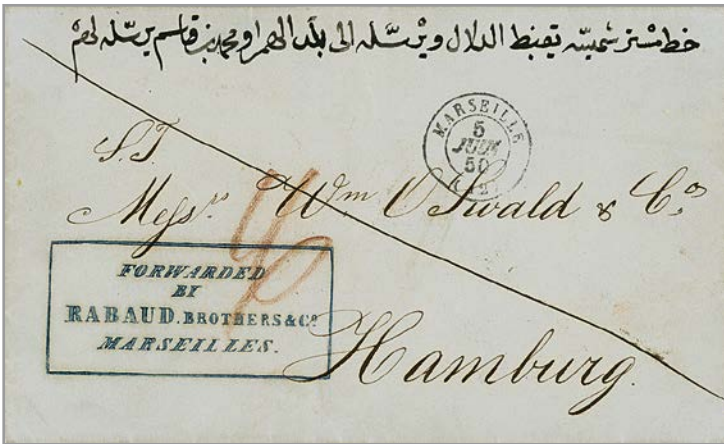 خط مستر شميسه يقبط الدلال ويرسله الى بلد الهمبرا ومحمد بن قاسم يرسله لهم
MARSEILLE
5
JUIN
50
S.T.
Messrs. Wm O'Swald & Co
FORWARDED
BY
RABAUD.BROTHERS&Co
MARSEILLES.
Hamburg.